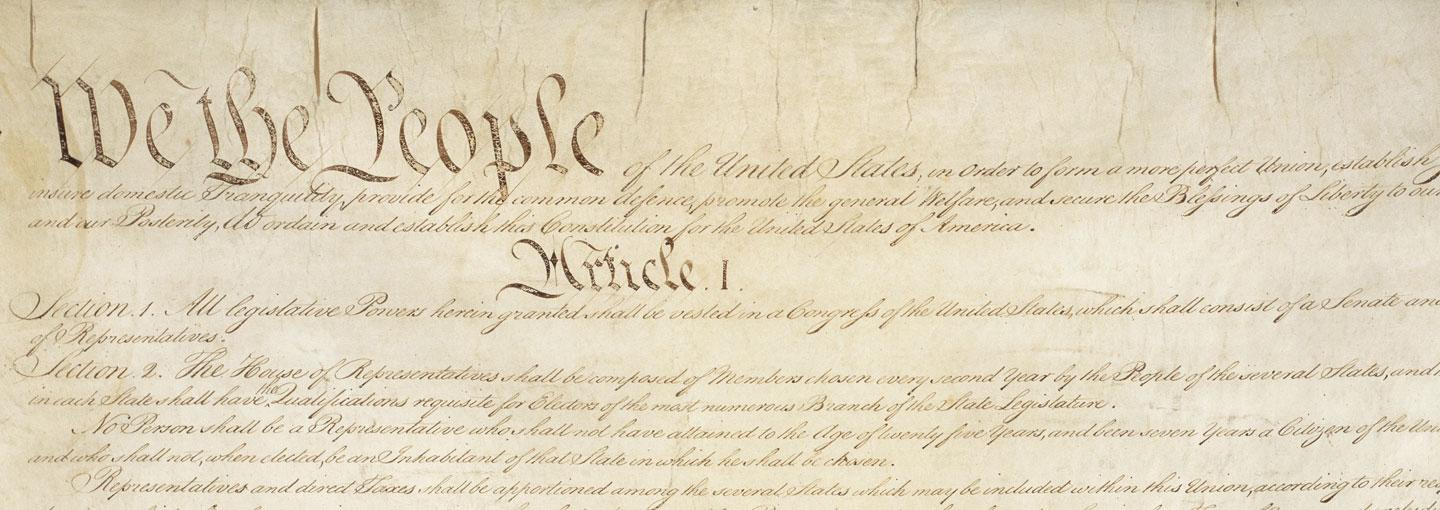 We the People of the United States, in Order to form a more perfect Union, establish
insure domestic Tranquility, provide for the common defence, promote the general Welfare, and secure the Blessings of Liberty to our
and our Posterity, do ordain and establish this Constitution for the United States of America.
Article. I.
Section. 1. All legislative Powers herein granted shall be vested in a Congress of the United States, which shall consist of a Senate and
of Representatives.
Section. 2. The House of Representatives shall be composed of Members chosen every second Year by the People of the several States, and
in each State shall have the Qualifications requisite for Electors of the most numerous Branch of the State Legislature.
No Person shall be a Representative who shall not have attained to the Age of twenty five Years, and been seven Years a Citizen of the
and who shall not, when elected, be an Inhabitant of that State in which he shall be chosen.
Representatives and direct Taxes shall be apportioned among the several States which may be included within this Union, according to their